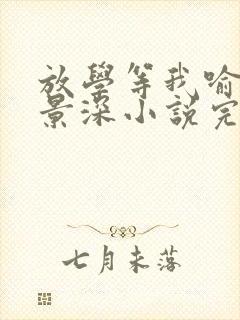 放學等我喻
景深小說完
七月未落